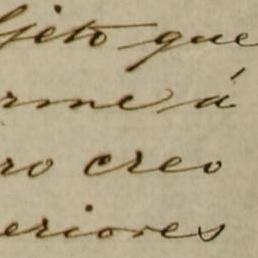 jeto que
rme á
ro creo
eriores